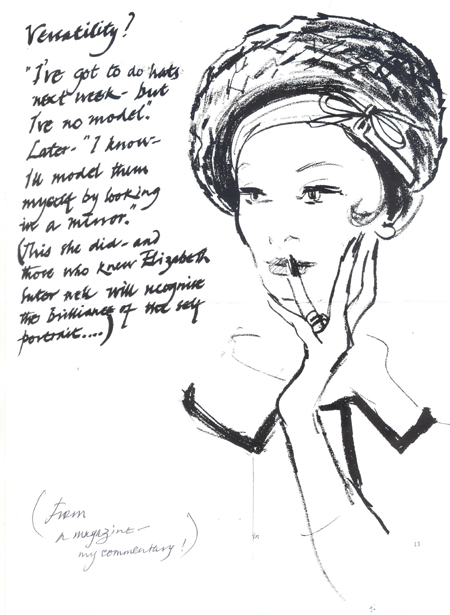 Versatility?
"I've got to do hats
next week - but
I've no model."
Later - "I know -
I'll model them
myself by looking
in a mirror."
(This she did - and
those who knew Elizabeth
Suter well will recognise
the brilliance of the self
portrait....)
(From
a magazine -
my commentary!)
13